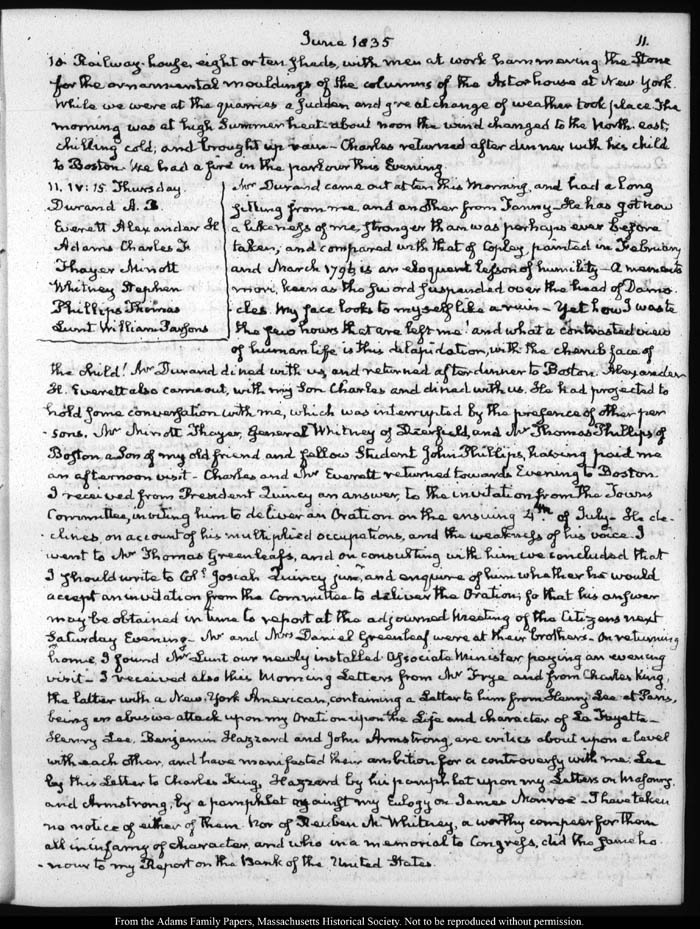 June 1835
11.
10. Railway-house, eight or ten sheds, with men at work hammering the Stone
for the ornamental mouldings of the columns of the Astor house at New York.
While we were at the quarries a sudden and great change of weather took place. The
morning was at high Summer heat—about noon the wind changed to the North-east,
chilling cold, and brought up rain—Charles returned after dinner with his child
to Boston. We had a fire in the parlour this Evening.
11. IV:15. Thursday.
Durand A. B.
Everett Alexander H
Adams Charles F.
Thayer Minott
Whitney Stephen
Phillips Thomas
Lunt William Parsons
Mr Durand came out at ten this Morning, and had a long
sitting from me, and another from Fanny—He has got now
a likeness of me, stronger than was perhaps ever before
taken; and compared with that of Copley, painted in February
and March 1796 is an eloquent lesson of humility—A memento
mori, keen as the sword suspended over the head of Damo-
-cles. My face looks to myself like a ruin—Yet how I waste
the few hours that are left me! and what a contrasted view
of human life is this dilapidation, with the cherub face of
the child! Mr Durand dined with us, and returned after dinner to Boston. Alexander
H. Everett also came out, with my Son Charles and dined with us. He had projected to
hold some conversation with me, which was interrupted by the presence of other per
-sons. Mr Minott Thayer, General Whitney of Deerfield, and Mr Thomas Phillips of
Boston a Son of my old friend and fellow Student John Phillips, having paid me
an afternoon visit—Charles and Mr Everett returned towards Evening to Boston.
I received from President Quincy an answer, to the invitation from the Towns
Committee, inviting him to deliver an Oration on the ensuing 4th of July. He de-
-clines, on account of his multiplied occupations, and the weakness of his voice. I
went to Mr Thomas Greenleaf's, and on consulting with him, we concluded that
I should write to Coll Josiah Quincy junr, and enquire of him whether he would
accept an invitation from the Committee to deliver the Oration; so that his answer
may be obtained in time to report at the adjourned Meeting of the Citizens next
Saturday Evening—Mr and Mrs Daniel Greenleaf were at their brothers—On returning
home, I found Mr Lunt our newly installed Associate Minister paying an evening
visit—I received also this Morning Letters from Mr Frye and from Charles King,
the latter with a New-York American, containing a Letter to him from Henry Lee at Paris,
being an abusive attack upon my Oration upon the Life and character of La Fayette—
Henry Lee, Benjamin Hazzard and John Armstrong, are critics about upon a level
with each other, and have manifested their ambition for a controversy with me. Lee
by this Letter to Charles King, Hazzard by his pamphlet upon my Letters on Masonry,
and Armstrong, by a pamphlet against my Eulogy on James Monroe—I have taken
no notice of either of them. Nor of Reuben M. Whitney, a worthy compeer for them
all in infamy of character, and who in a memorial to Congress, did the same ho-
-nour to my Report on the Bank of the United States.
From the Adams Family Papers, Massachusetts Historical Society. Not to be reproduced without permission.